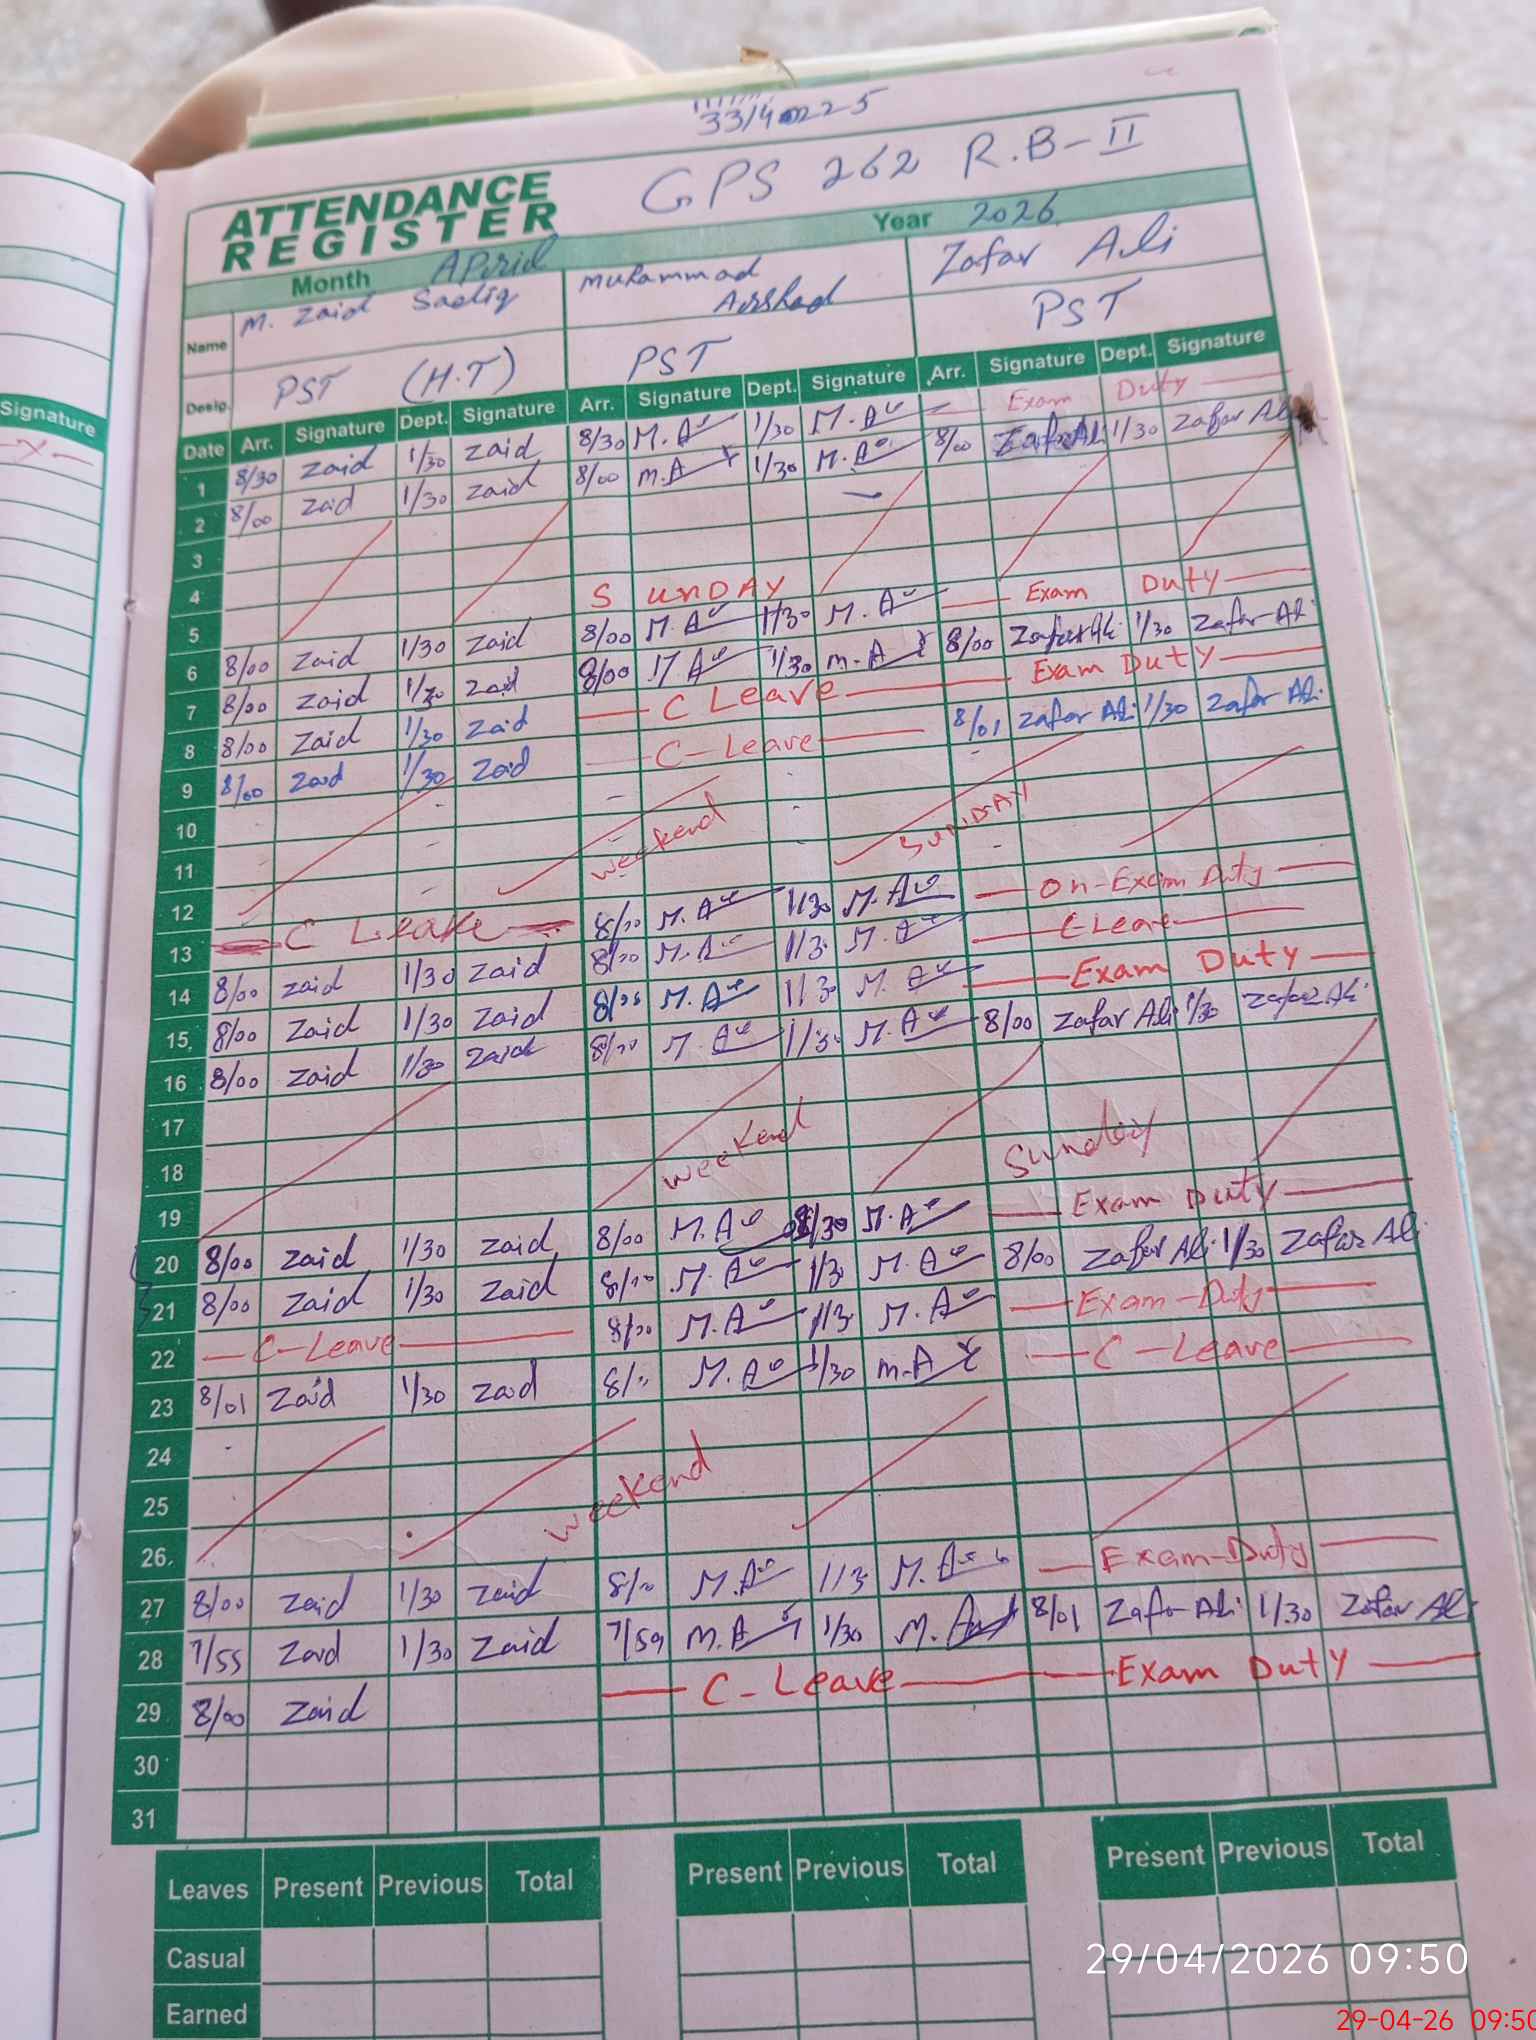 GPS 262 R.B-II
ATTENDANCE REGISTER
Month April Year 2026
Name M. Zaid Sadiq Muhammad Arshad Zafar Ali
Desig. PST (H.T) PST PST
Date Arr. Signature Dept. Signature Arr. Signature Dept. Signature Arr. Signature Dept. Signature
1 8/30 Zaid 1/30 Zaid 8/30 M.A 1/30 M.A Exam Duty
2 8/00 Zaid 1/30 Zaid 8/00 M.A 1/30 M.A 8/00 Zafar Ali 1/30 Zafar Ali
3
4
5 SUNDAY
6 8/00 Zaid 1/30 Zaid 8/00 M.A 1/30 M.A Exam Duty
7 8/00 Zaid 1/30 Zaid 8/00 M.A 1/30 M.A 8/00 Zafar Ali 1/30 Zafar Ali
8 8/00 Zaid 1/30 Zaid C Leave Exam Duty
9 8/00 Zaid 1/30 Zaid C-Leave 8/01 Zafar Ali 1/30 Zafar Ali
10
11 weekend SUNDAY
12
13 C Leave 8/00 M.A 1/30 M.A On-Exam Duty
14 8/00 Zaid 1/30 Zaid 8/00 M.A 1/3 M.A C Leave
15 8/00 Zaid 1/30 Zaid M.A 1/3 M.A Exam Duty
16 8/00 Zaid 1/30 Zaid 8/00 M.A 1/3 M.A 8/00 Zafar Ali 1/30 Zafar Ali
17
18 weekend Sunday
19
20 8/00 Zaid 1/30 Zaid 8/00 M.A M.A Exam Duty
21 8/00 Zaid 1/30 Zaid 8/00 M.A 1/3 M.A 8/00 Zafar Ali 1/30 Zafar Ali
22 C-Leave 8/00 M.A 1/3 M.A Exam-Duty
23 8/01 Zaid 1/30 Zaid M.A 1/30 M.A C-Leave
24
25 weekend
26
27 8/00 Zaid 1/30 Zaid M.A 1/3 M.A Exam-Duty
28 7/55 Zaid 1/30 Zaid 7/59 M.A 1/30 M. 8/01 Zafar Ali 1/30 Zafar Ali
29 8/00 Zaid C-Leave Exam Duty
30
31
Leaves Present Previous Total Present Previous Total Present Previous Total
Casual
Earned
Signature
29/04/2026 09:50
29-04-26 09:50